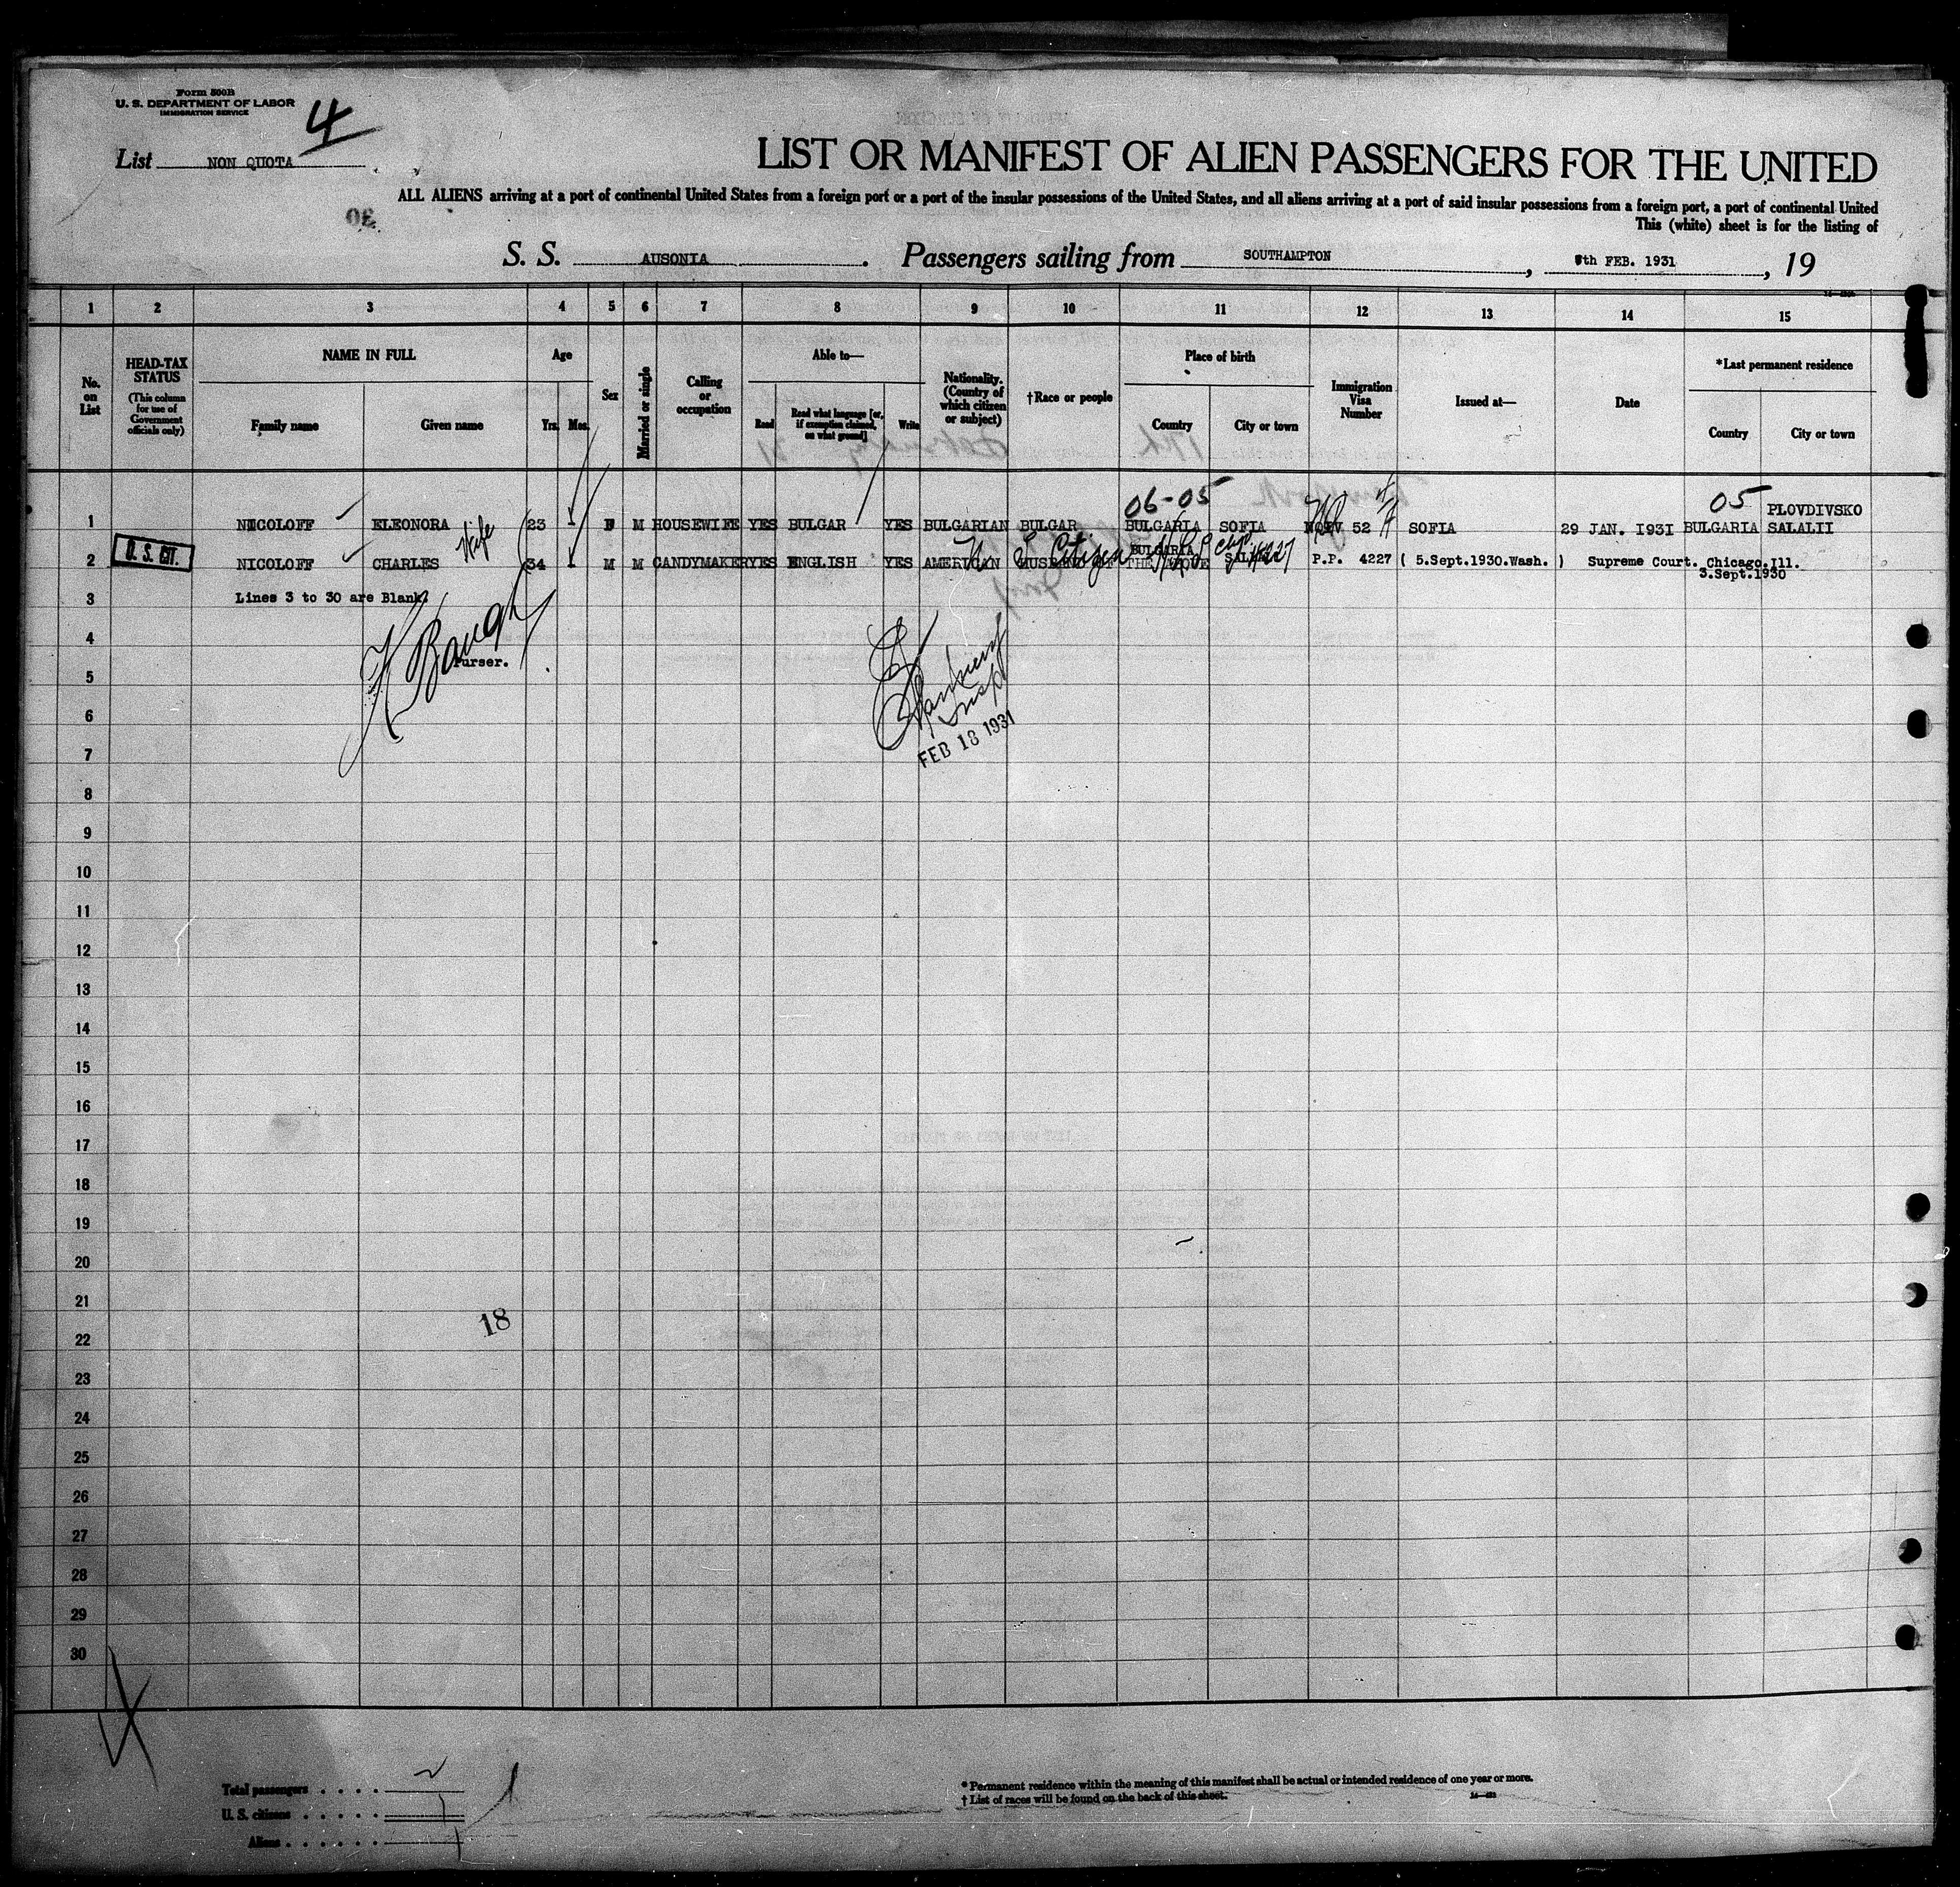 Form 500B
U. S. DEPARTMENT OF LABOR
IMMIGRATION SERVICE
4
List NON QUOTA
LIST OR MANIFEST OF ALIEN PASSENGERS FOR THE UNITED
ALL ALIENS arriving at a port of continental United States from a foreign port or a port of the insular possessions of the United States, and all aliens arriving at a port of said insular possessions from a foreign port, a port of continental United
This (white) sheet is for the listing of
30
S. S. AUSONIA. Passengers sailing from SOUTHAMPTON, th FEB. 1931, 19
1 2 3 4 5 6 7 8 9 10 11 12 13 14 15
No. on List
HEAD-TAX STATUS
(This column for use of Government officials only)
NAME IN FULL
Family name Given name
Age
Yrs. Mos.
Sex
Married or single
Calling or occupation
Able to—
Read Read what language [or, if exemption claimed, on what ground] Write
Nationality. (Country of which citizen or subject)
†Race or people
Place of birth
Country City or town
Immigration Visa Number
Issued at—
Date
*Last permanent residence
Country City or town
06-05 05 PLOVDIVSKO
1 NICOLOFF ELEONORA Wife 23 F M HOUSEWIFE YES BULGAR YES BULGARIAN BULGAR BULGARIA SOFIA 52 SOFIA 29 JAN. 1931 BULGARIA SALALII
2 U. S. CIT. NICOLOFF CHARLES 34 M M CANDYMAKER YES ENGLISH YES AMERICAN Citizen BULGARIA P.P. 4227 ( 5.Sept.1930.Wash. ) Supreme Court. Chicago.Ill.
3.Sept.1930
3 Lines 3 to 30 are Blank.
H Baugh
Purser.
4
5
6
Insp
FEB 18 1931
7
8
9
10
11
12
13
14
15
16
17
18
19
20
21
18
22
23
24
25
26
27
28
29
30
Total passengers . . . . 2
U. S. citizens . . . . . 1
Aliens . . . . . . 1
* Permanent residence within the meaning of this manifest shall be actual or intended residence of one year or more.
† List of races will be found on the back of this sheet.